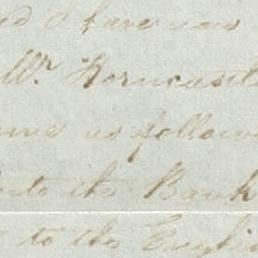 I have
Mr. Horncastle
as follow
to the Bank
to the Englis